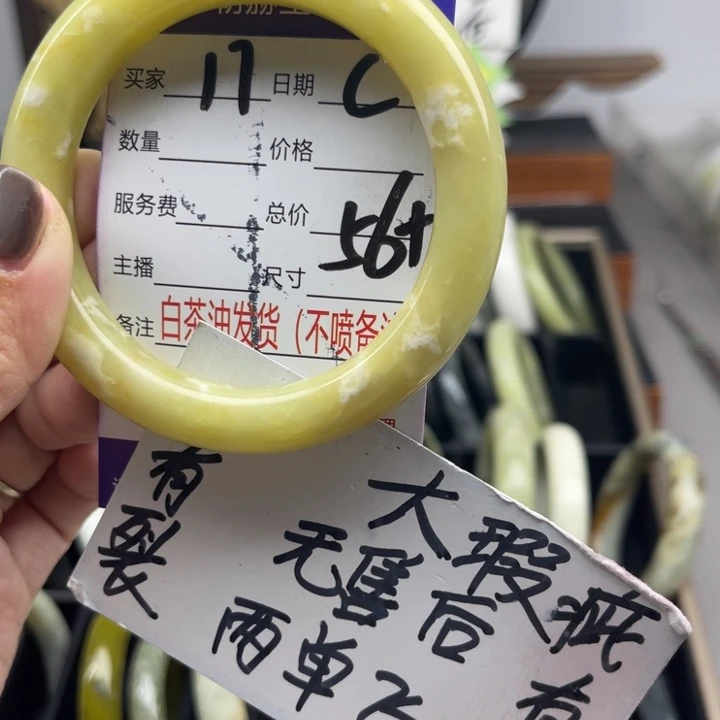 买家 17 日期 C
数量 价格
服务费 总价 56+
主播 尺寸
备注 白茶油发货（不喷备注
有裂
大瑕疵
无售后 有
两单飞